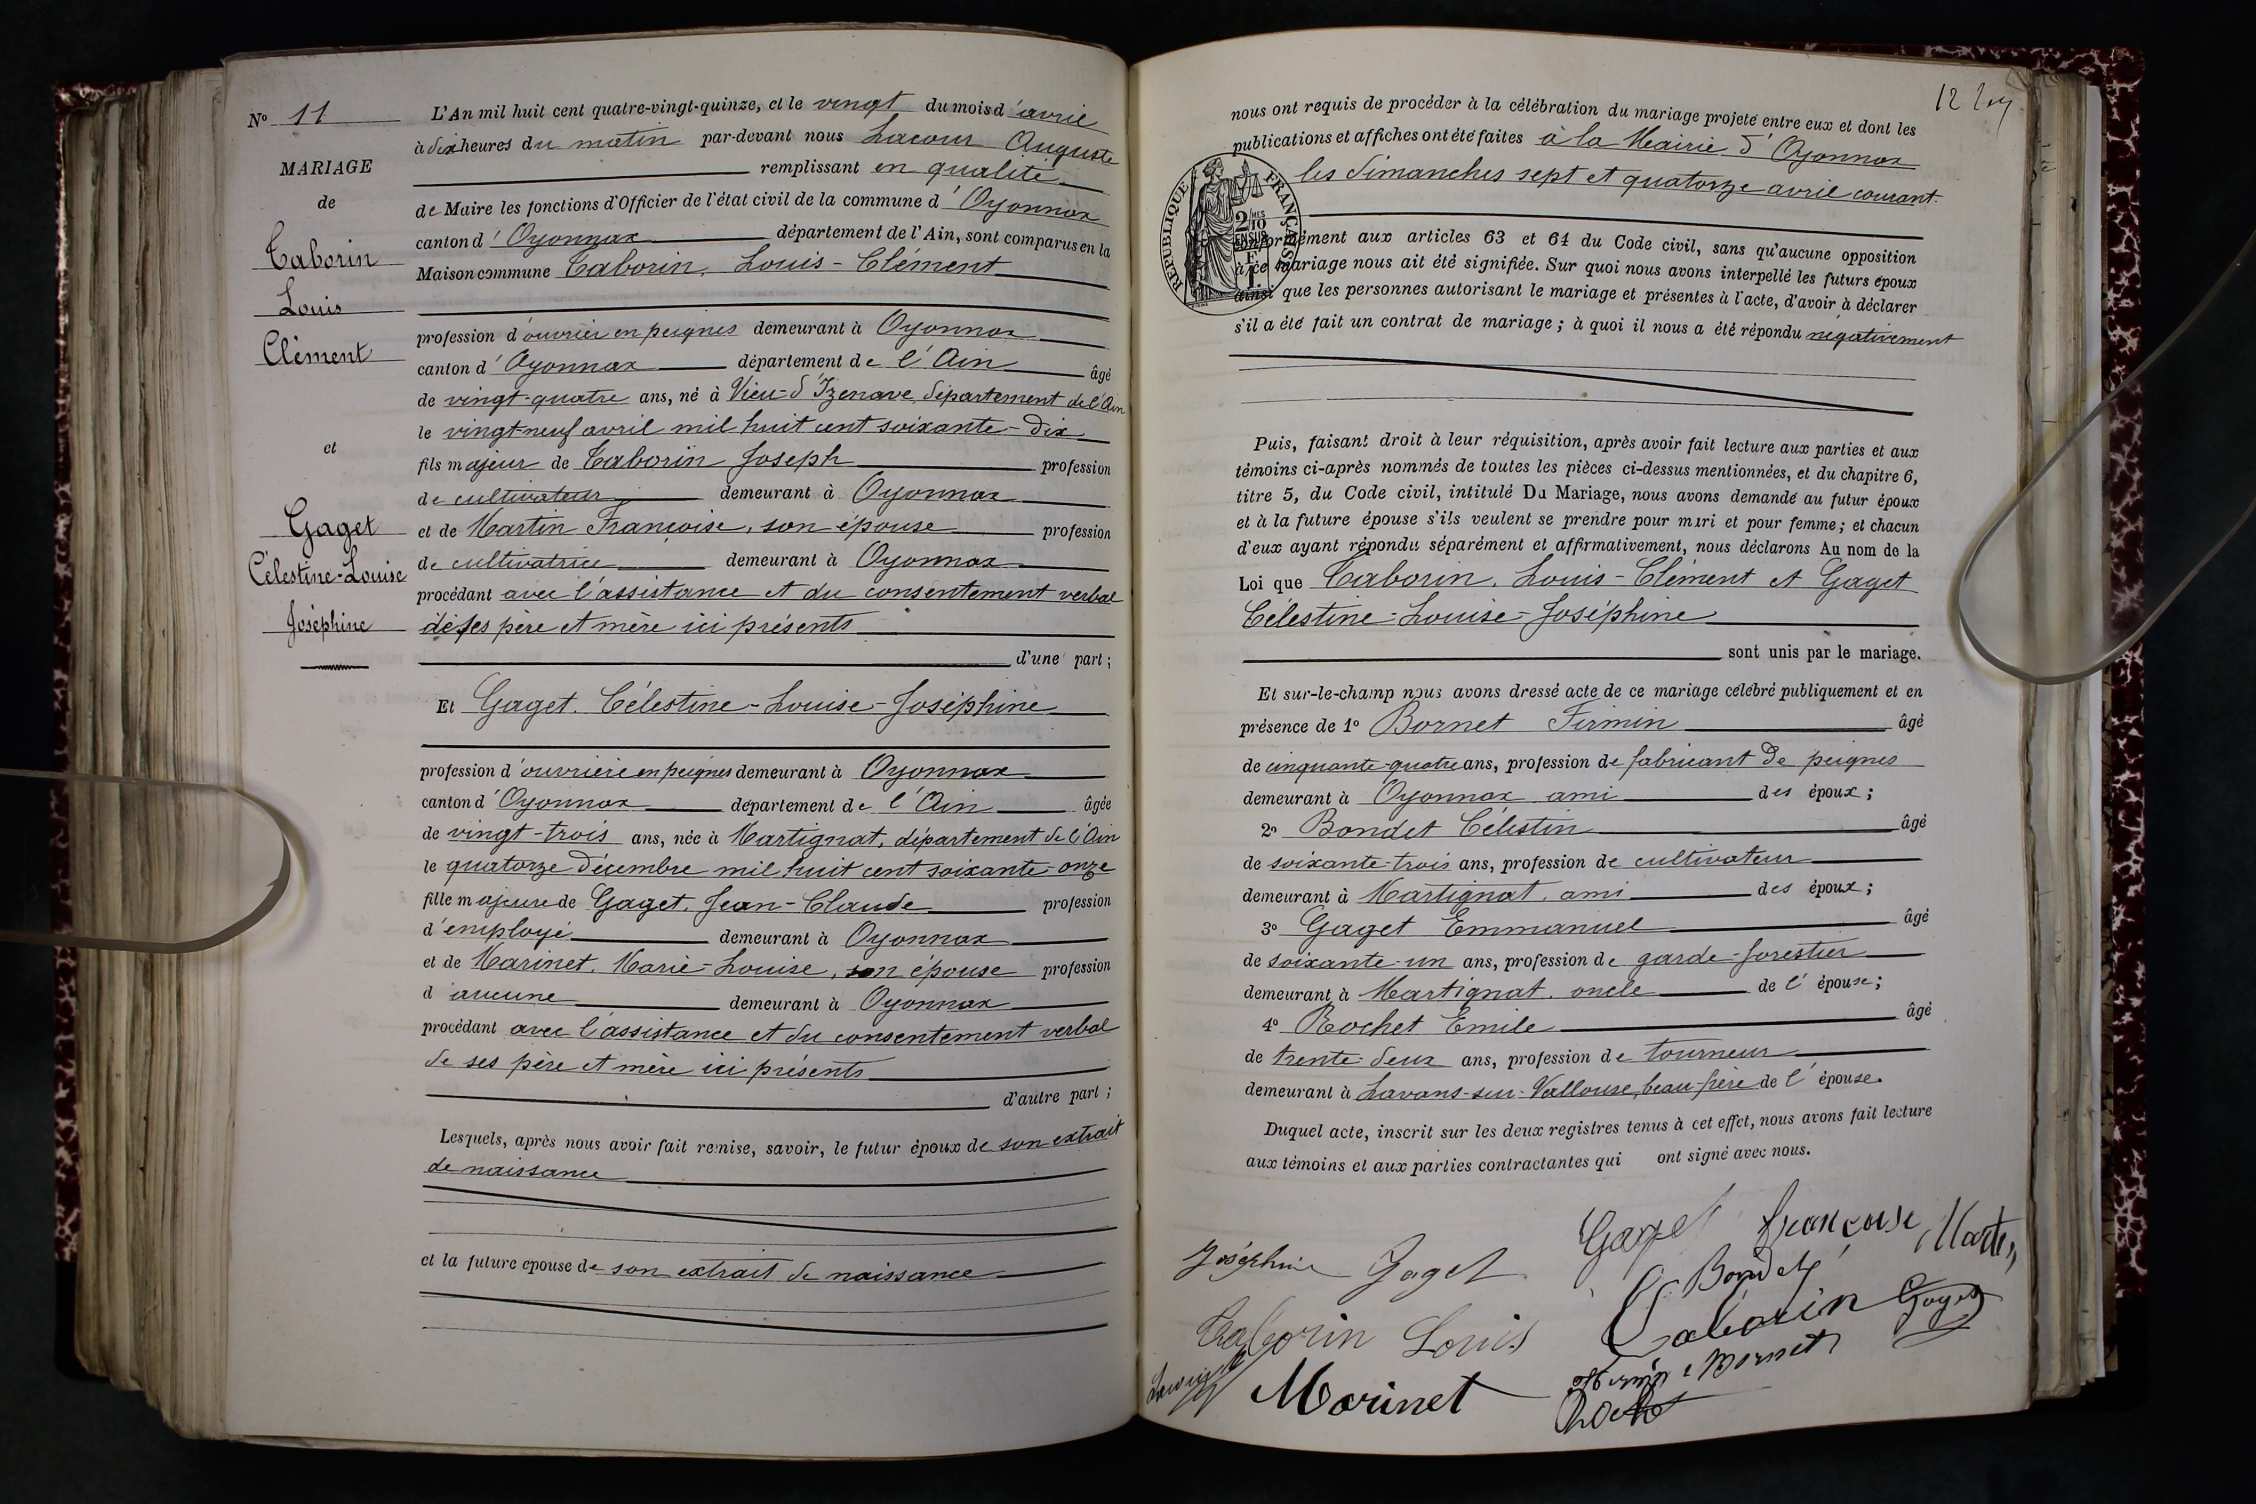 N° 11
MARIAGE
de
Taborin
Louis
Clément
et
Gaget
Célestine-Louise
Joséphine
L'An mil huit cent quatre-vingt-quinze, et le vingt du mois d'avril
à dix heures du matin par-devant nous Lacour Auguste
remplissant en qualité
de Maire les fonctions d'Officier de l'état civil de la commune d'Oyonnax
canton d'Oyonnax département de l'Ain, sont comparus en la
Maison commune Taborin, Louis-Clément
profession d'ouvrier en peignes demeurant à Oyonnax
canton d'Oyonnax département de l'Ain âgé
de vingt-quatre ans, né à Vieu-d'Izenave, département de l'Ain
le vingt-neuf avril mil huit cent soixante-dix
fils majeur de Taborin Joseph profession
de cultivateur demeurant à Oyonnax
et de Martin Françoise, son épouse profession
de cultivatrice demeurant à Oyonnax
procédant avec l'assistance et du consentement verbal
de ses père et mère ici présents
d'une part ;
Et Gaget. Célestine-Louise-Joséphine
profession d'ouvrière en peignes demeurant à Oyonnax
canton d'Oyonnax département de l'Ain âgée
de vingt-trois ans, née à Martignat, département de l'Ain
le quatorze décembre mil huit cent soixante-onze
fille majeure de Gaget, Jean-Claude profession
d'employé demeurant à Oyonnax
et de Marinet. Marie-Louise, son épouse profession
d'aucune demeurant à Oyonnax
procédant avec l'assistance et du consentement verbal
de ses père et mère ici présents
d'autre part ;
Lesquels, après nous avoir fait remise, savoir, le futur époux de son extrait
de naissance
et la future épouse de son extrait de naissance
12
nous ont requis de procéder à la célébration du mariage projeté entre eux et dont les
publications et affiches ont été faites à la Mairie d'Oyonnax
les dimanches sept et quatorze avril courant.
RÉPUBLIQUE FRANÇAISE
2/10 EN SUS
conformément aux articles 63 et 64 du Code civil, sans qu'aucune opposition
à ce mariage nous ait été signifiée. Sur quoi nous avons interpellé les futurs époux
ainsi que les personnes autorisant le mariage et présentes à l'acte, d'avoir à déclarer
s'il a été fait un contrat de mariage ; à quoi il nous a été répondu négativement
Puis, faisant droit à leur réquisition, après avoir fait lecture aux parties et aux
témoins ci-après nommés de toutes les pièces ci-dessus mentionnées, et du chapitre 6,
titre 5, du Code civil, intitulé Du Mariage, nous avons demandé au futur époux
et à la future épouse s'ils veulent se prendre pour mari et pour femme ; et chacun
d'eux ayant répondu séparément et affirmativement, nous déclarons Au nom de la
Loi que Taborin, Louis-Clément et Gaget
Célestine-Louise-Joséphine
sont unis par le mariage.
Et sur-le-champ nous avons dressé acte de ce mariage célébré publiquement et en
présence de 1° Bornet Firmin âgé
de cinquante-quatre ans, profession de fabricant de peignes
demeurant à Oyonnax ami des époux ;
2° Bondet Célestin âgé
de soixante-trois ans, profession de cultivateur
demeurant à Martignat, ami des époux ;
3° Gaget Emmanuel âgé
de soixante-un ans, profession de garde-forestier
demeurant à Martignat, oncle de l'épouse ;
4° Rochet Emile âgé
de trente-deux ans, profession de tourneur
demeurant à Lavans-sur-Valouse, beau-frère de l'épouse.
Duquel acte, inscrit sur les deux registres tenus à cet effet, nous avons fait lecture
aux témoins et aux parties contractantes qui ont signé avec nous.
Joséphine Gaget Gaget françoise Martin
Bondet
Taborin Louis Taborin Gaget
Marinet Bornet
Rochet